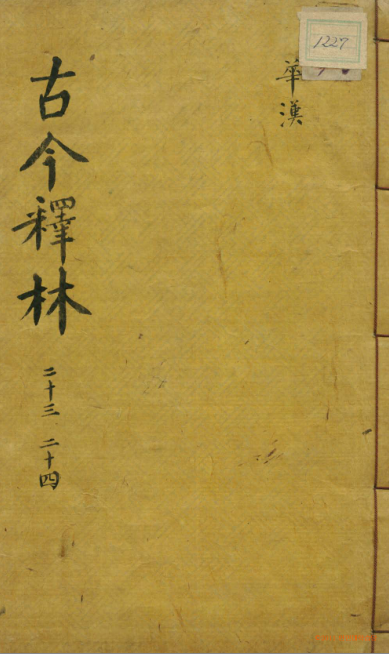 1227
華漢
古今釋林
二十三 二十四